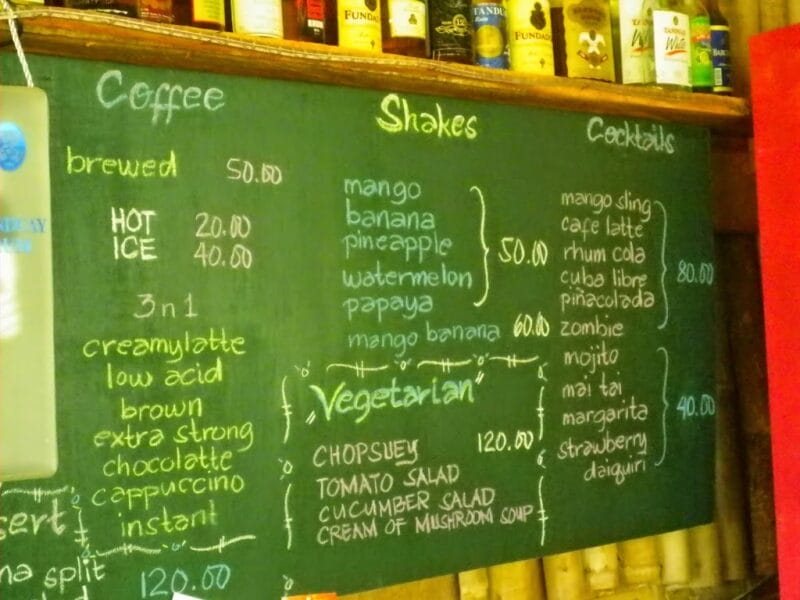 Coffee
brewed 50.00
HOT 20.00
ICE 40.00
3n1
creamylatte
low acid
brown
extra strong
chocolatte
cappuccino
instant
Shakes
mango
banana
pineapple
watermelon
papaya
50.00
mango banana 60.00
"Vegetarian"
CHOPSUEY 120.00
TOMATO SALAD
CUCUMBER SALAD
CREAM OF MUSHROOM SOUP
Cocktails
mango sling
cafe latte
rhum cola
cuba libre
piñacolada
zombie
80.00
mojito
mai tai
margarita
strawberry
daiquiri
40.00
split
120.00
FUNDAD
FUNDAD
White